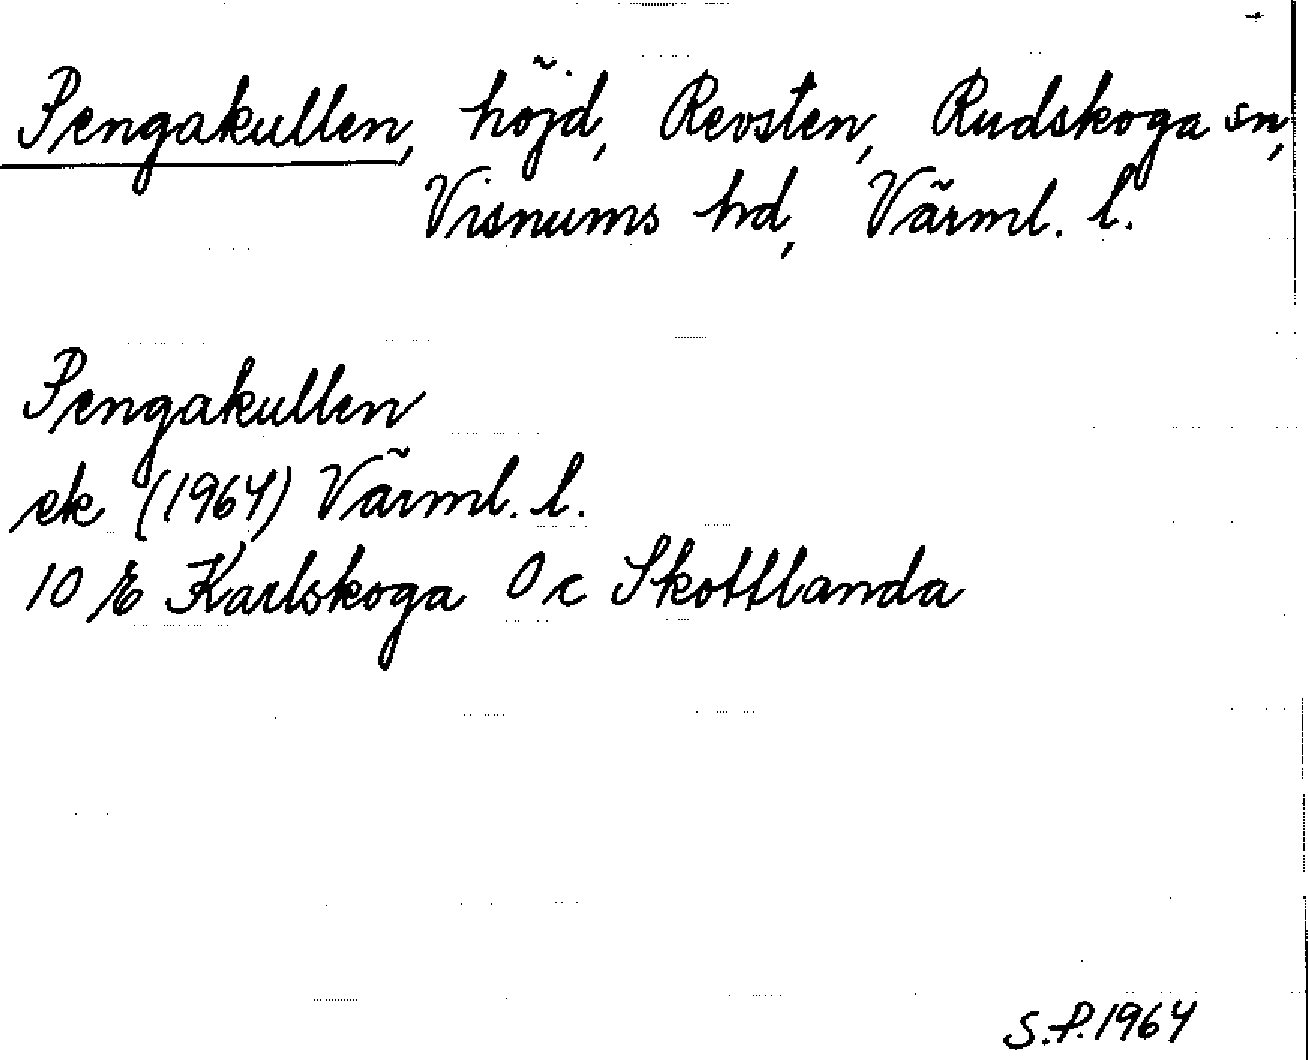 Pengakullen, höjd, Revsten, Rudskoga sn,
Visnums hd, Värml. l.
Pengakullen
ek (1964) Värml. l.
10 E Karlskoga 0c Skottlanda
S.P. 1964